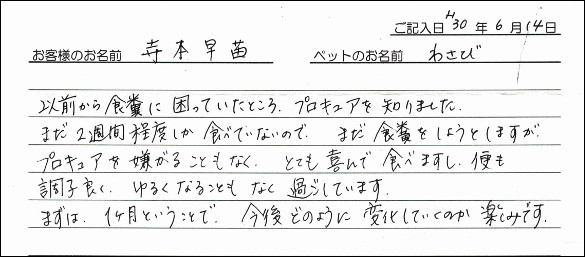 ご記入日 H30年 6月 14日
お客様のお名前 寺本早苗 ペットのお名前 わさび
以前から食糞に困っていたところ、プロキュアを知りました。
まだ2週間程度しか食べていないので、まだ食糞をしようとしますが、
プロキュアを嫌がることもなく、とても喜んで食べますし、便も
調子良く、ゆるくなることもなく過ごしています。
まずは、1ヶ月ということで、今後どのように変化していくのか楽しみです。